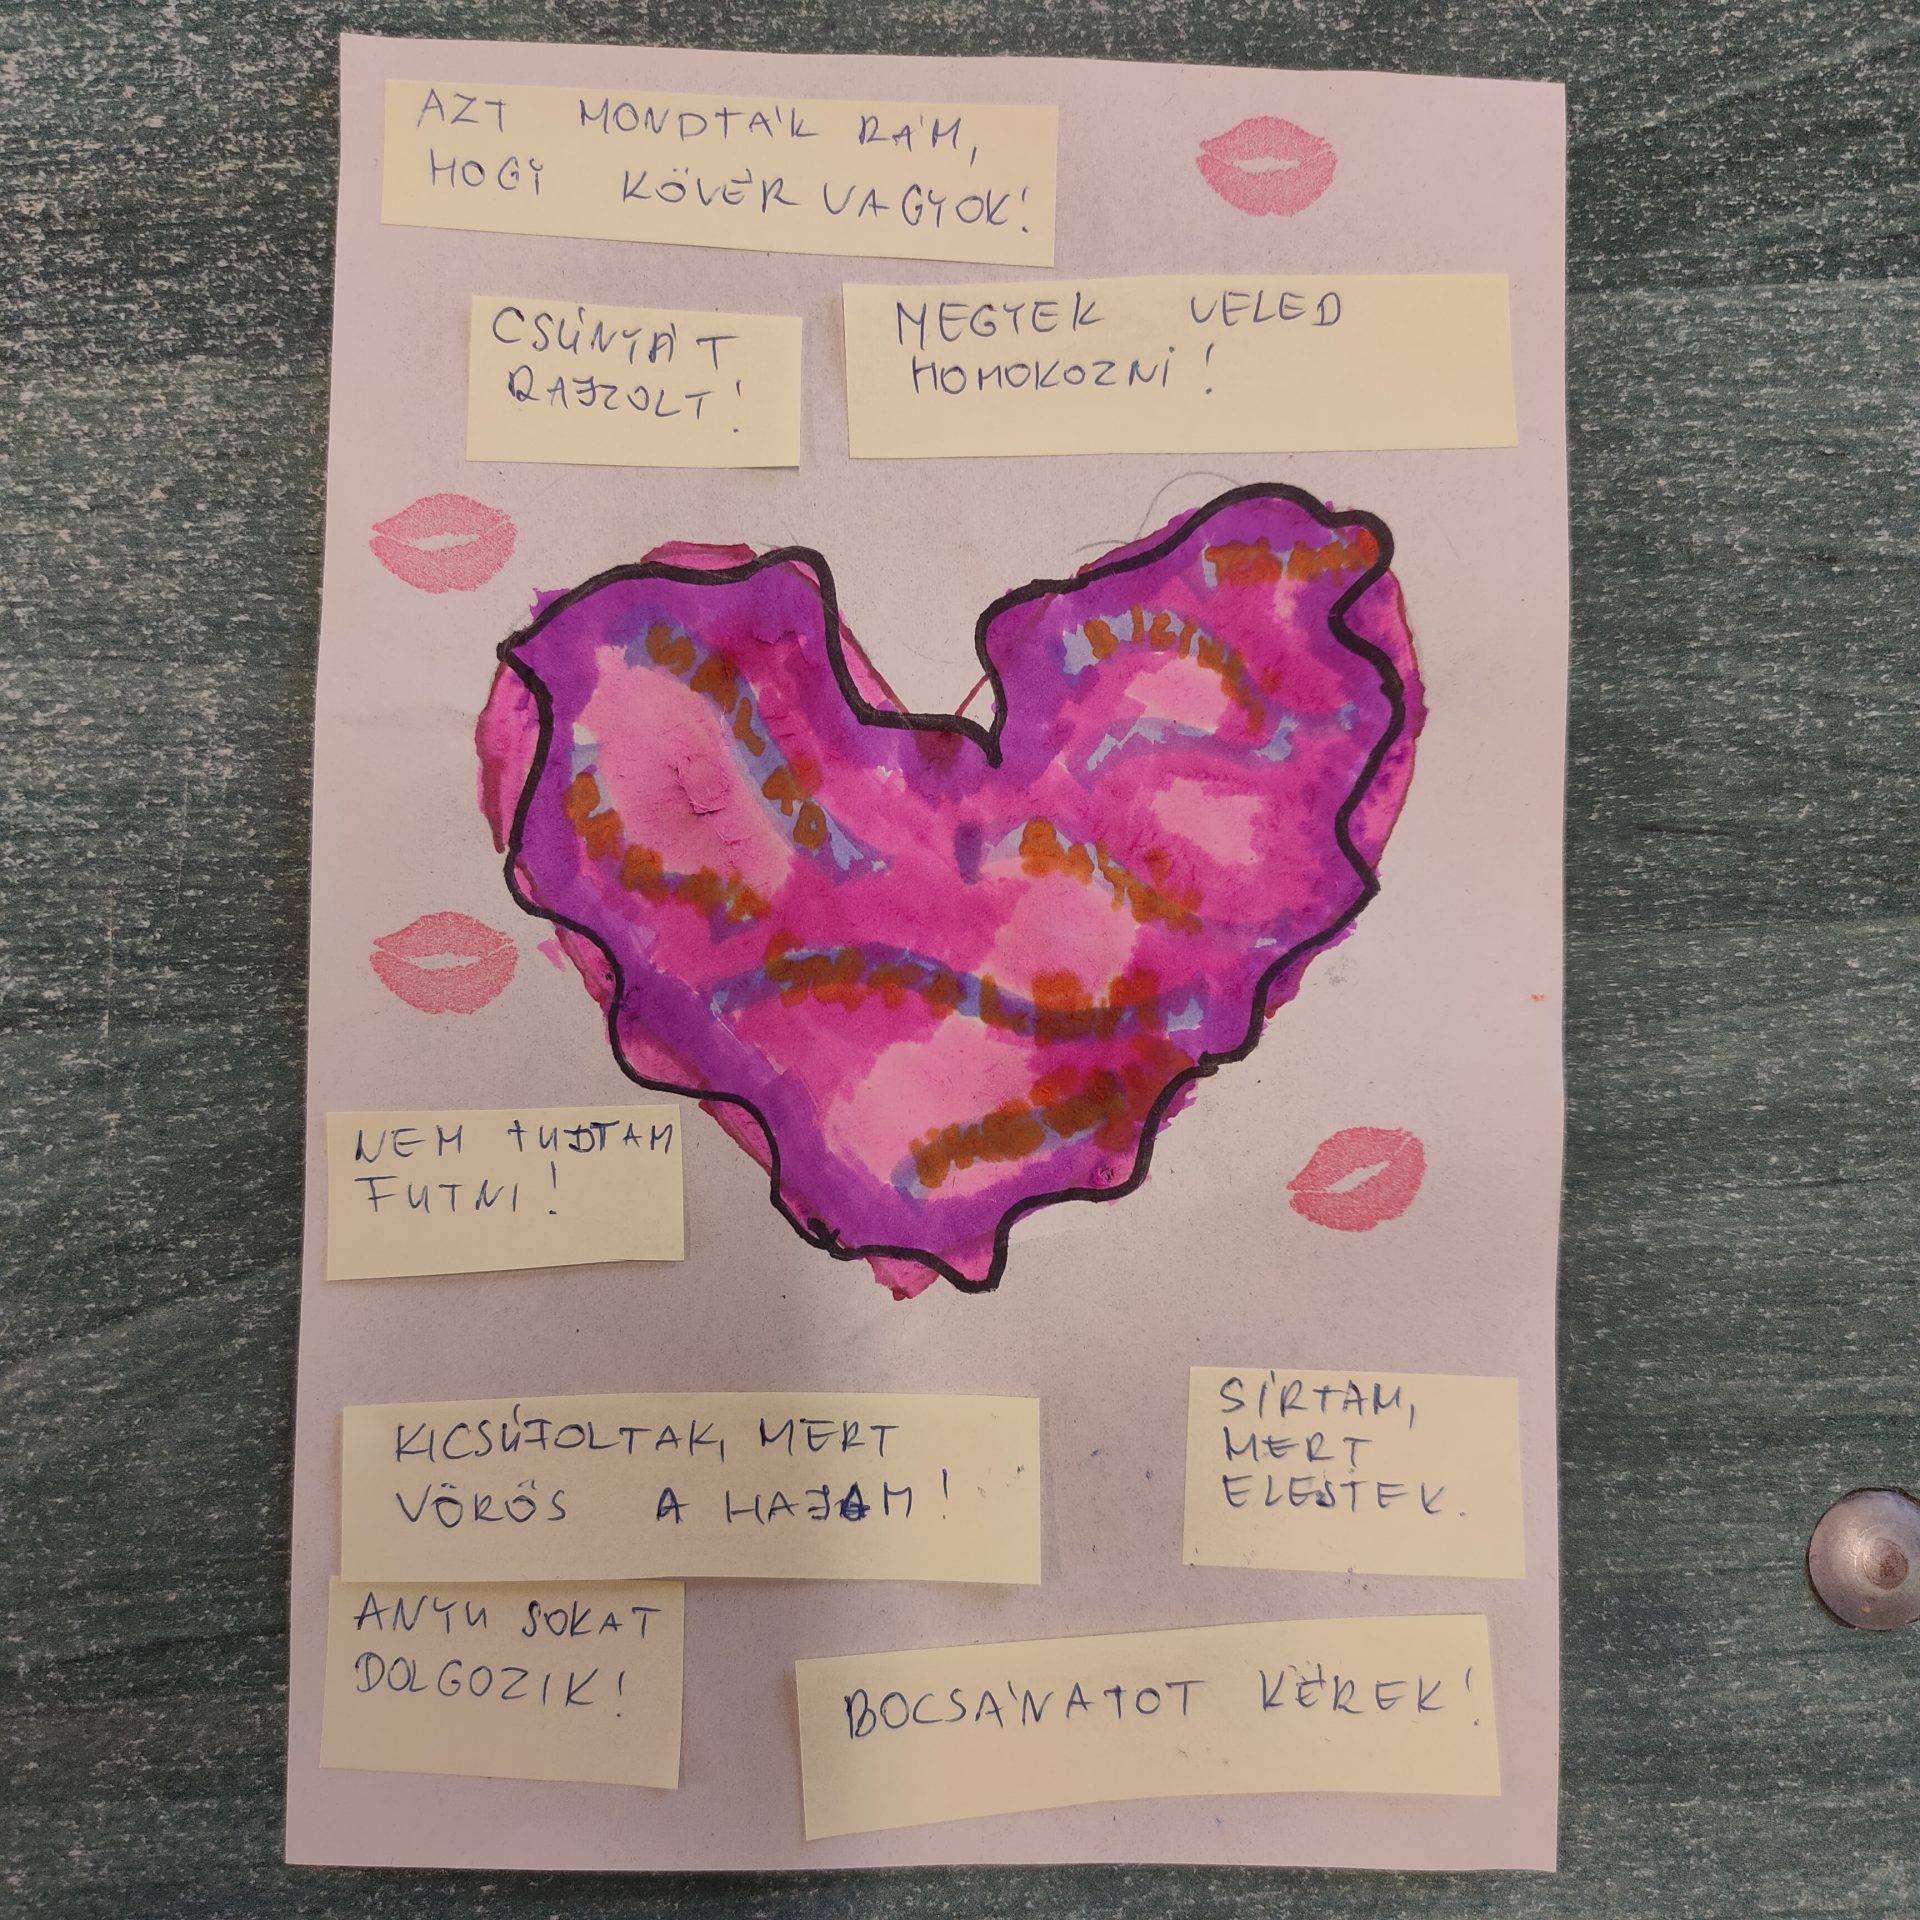 AZT MONDTÁK RÁM,
HOGY KÖVÉR VAGYOK!
CSÚNYÁT
RAJZOLT!
MEGYEK VELED
HOMOKOZNI!
NEM TUDTAM
FUTNI!
KICSÚFOLTAK, MERT
VÖRÖS A HAJAM!
SÍRTAM,
MERT
ELESTEK.
ANYU SOKAT
DOLGOZIK!
BOCSÁNATOT KÉREK!